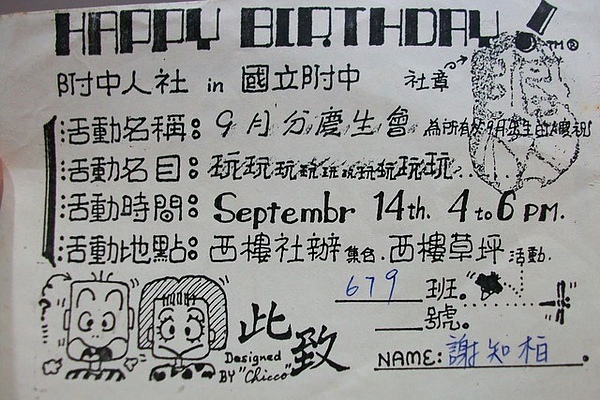 HAPPY BIRTHDAY
附中人社 in 國立附中 社章
TM ®
活動名稱: 9月分慶生會 為所有9月出生的人慶祝
活動名目: 玩玩玩玩玩玩玩玩玩玩...
活動時間: Septembr 14th. 4 to 6 PM.
活動地點: 西樓社辦集合. 西樓草坪活動.
679 班。
號。
此致
Designed
BY "Chicco"
NAME: 謝知柏